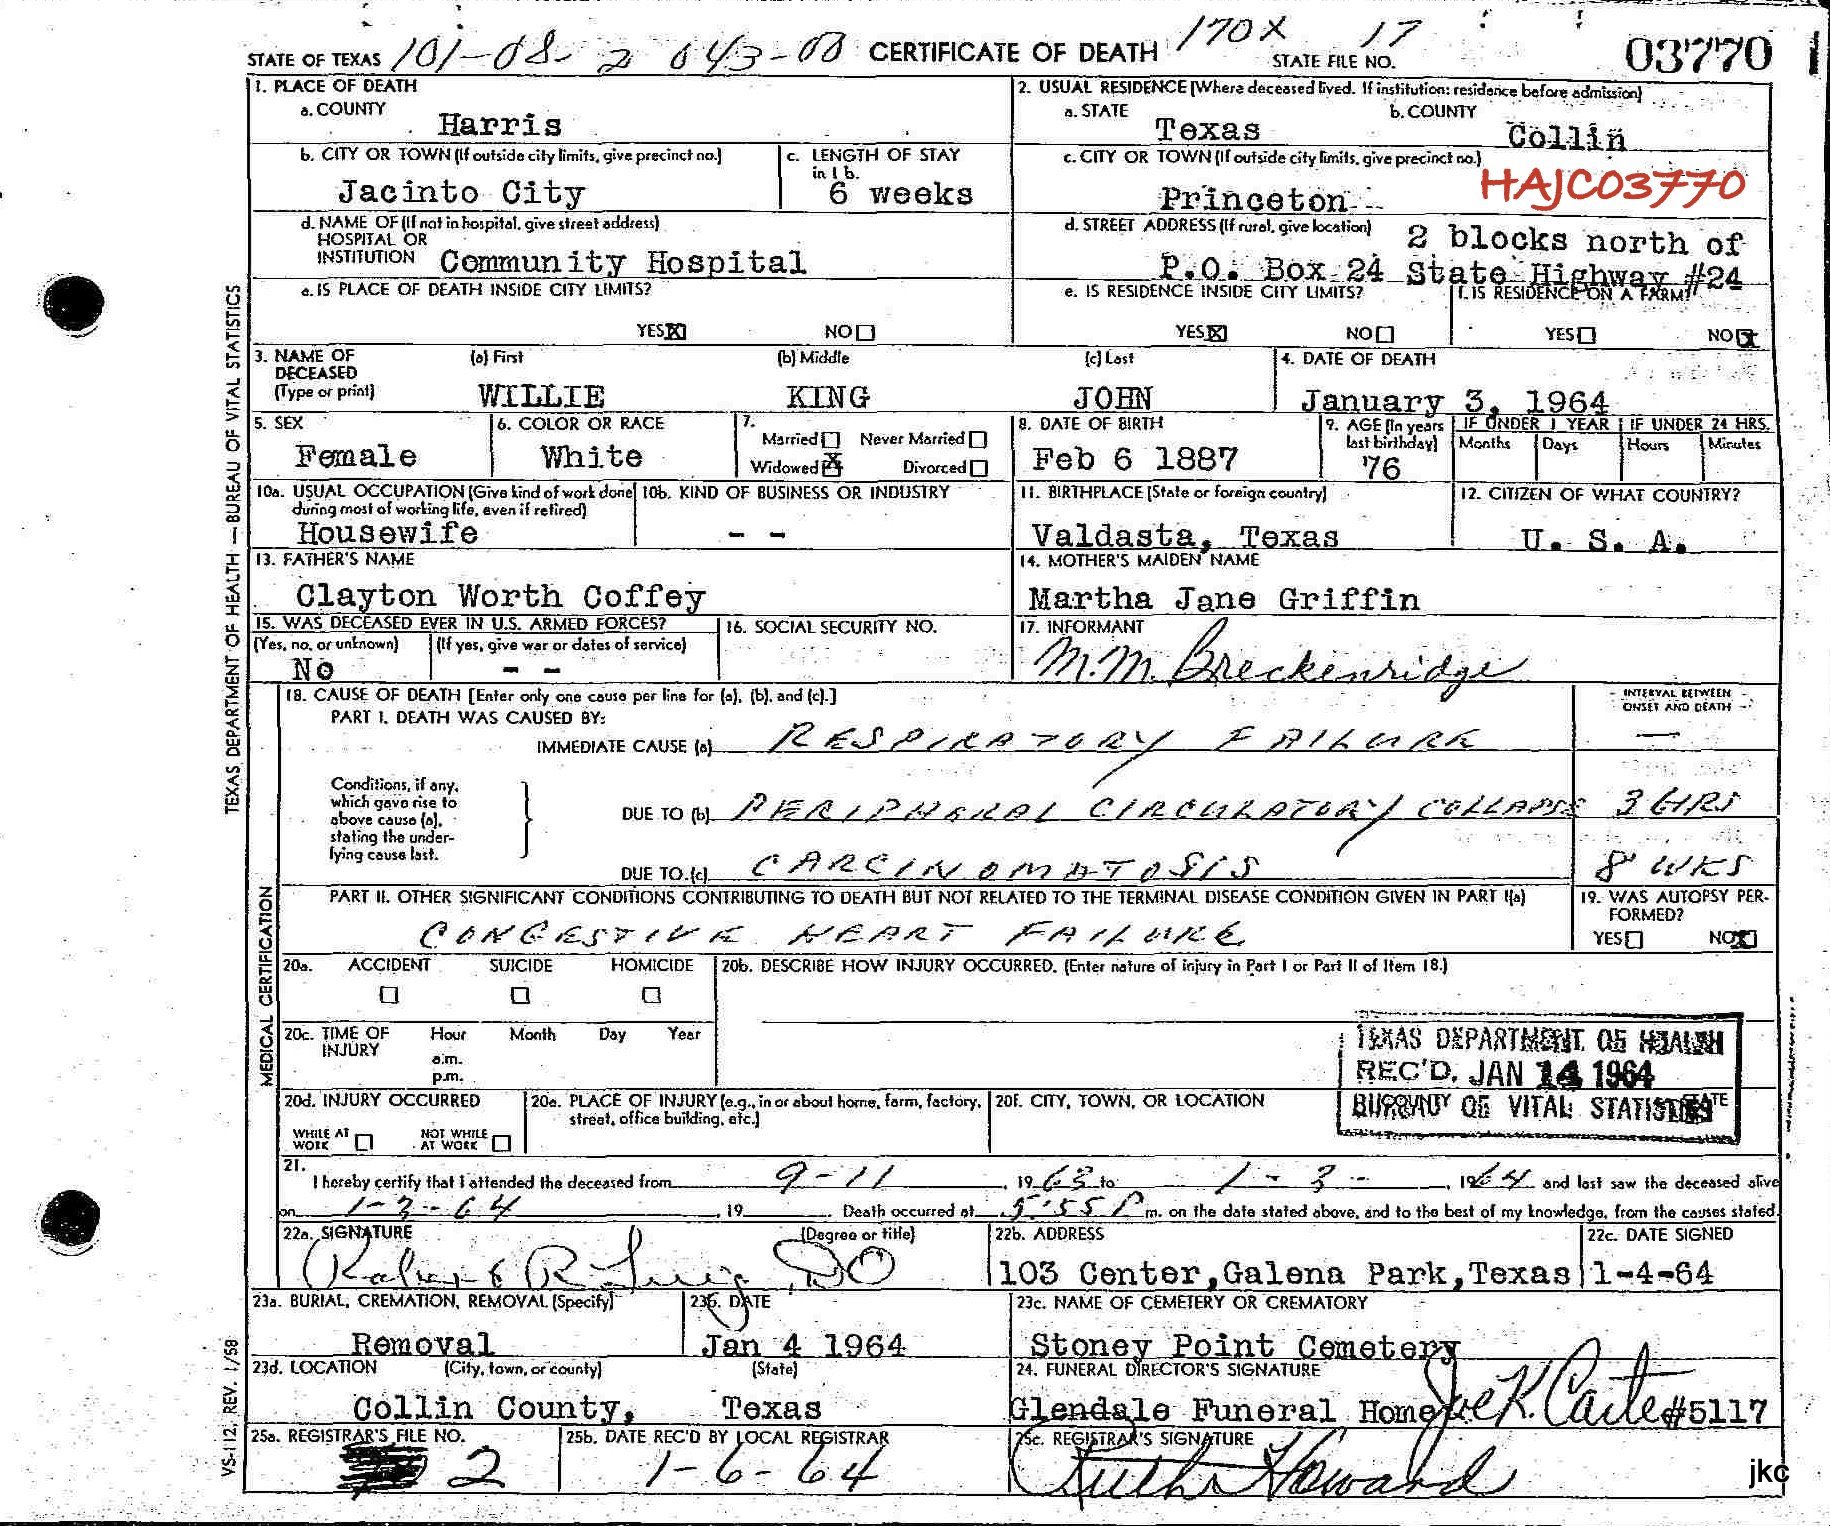 STATE OF TEXAS 101-08- 2 043-00 CERTIFICATE OF DEATH 170X 17 STATE FILE NO. 03770
1. PLACE OF DEATH
a. COUNTY
Harris
2. USUAL RESIDENCE (Where deceased lived. If institution: residence before admission)
a. STATE b. COUNTY
Texas Collin
b. CITY OR TOWN (If outside city limits, give precinct no.)
Jacinto City
c. LENGTH OF STAY
in 1 b.
6 weeks
c. CITY OR TOWN (If outside city limits, give precinct no.)
Princeton
HAJC03770
d. NAME OF (If not in hospital, give street address)
HOSPITAL OR
INSTITUTION Community Hospital
d. STREET ADDRESS (If rural, give location) 2 blocks north of
P.O. Box 24 State Highway #24
e. IS PLACE OF DEATH INSIDE CITY LIMITS?
YES X NO
e. IS RESIDENCE INSIDE CITY LIMITS?
YES X NO
f. IS RESIDENCE ON A FARM?
YES NO X
3. NAME OF
DECEASED
(Type or print)
(a) First (b) Middle (c) Last
WILLIE KING JOHN
4. DATE OF DEATH
January 3, 1964
5. SEX
Female
6. COLOR OR RACE
White
7.
Married Never Married
Widowed X Divorced
8. DATE OF BIRTH
Feb 6 1887
9. AGE (In years
last birthday)
76
IF UNDER 1 YEAR
Months Days
IF UNDER 24 HRS.
Hours Minutes
10a. USUAL OCCUPATION (Give kind of work done
during most of working life, even if retired)
Housewife
10b. KIND OF BUSINESS OR INDUSTRY
- -
11. BIRTHPLACE (State or foreign country)
Valdasta, Texas
12. CITIZEN OF WHAT COUNTRY?
U. S. A.
13. FATHER'S NAME
Clayton Worth Coffey
14. MOTHER'S MAIDEN NAME
Martha Jane Griffin
15. WAS DECEASED EVER IN U.S. ARMED FORCES?
(Yes, no, or unknown) (If yes, give war or dates of service)
No - -
16. SOCIAL SECURITY NO.
17. INFORMANT
M.M. Breckenridge
18. CAUSE OF DEATH [Enter only one cause per line for (a), (b), and (c).]
PART I. DEATH WAS CAUSED BY:
INTERVAL BETWEEN
ONSET AND DEATH
IMMEDIATE CAUSE (a) RESPIRATORY FAILURE —
Conditions, if any,
which gave rise to
above cause (a),
stating the under-
lying cause last.
DUE TO (b) PERIPHERAL CIRCULATORY COLLAPSE 36HRS
DUE TO (c) CARCINOMATOSIS 8 WKS
PART II. OTHER SIGNIFICANT CONDITIONS CONTRIBUTING TO DEATH BUT NOT RELATED TO THE TERMINAL DISEASE CONDITION GIVEN IN PART I(a)
CONGESTIVE HEART FAILURE
19. WAS AUTOPSY PER-
FORMED?
YES NO X
20a. ACCIDENT SUICIDE HOMICIDE
20b. DESCRIBE HOW INJURY OCCURRED. (Enter nature of injury in Part I or Part II of Item 18.)
20c. TIME OF
INJURY
Hour Month Day Year
a.m.
p.m.
TEXAS DEPARTMENT OF HEALTH
REC'D. JAN 14 1964
BUREAU OF VITAL STATISTICS
20d. INJURY OCCURRED
WHILE AT
WORK
NOT WHILE
AT WORK
20e. PLACE OF INJURY (e.g., in or about home, farm, factory,
street, office building, etc.)
20f. CITY, TOWN, OR LOCATION COUNTY STATE
21.
I hereby certify that I attended the deceased from 9-11, 1963 to 1-3-, 1964 and last saw the deceased alive
on 1-3-64, 19 . Death occurred at 5:55 P m. on the date stated above, and to the best of my knowledge, from the causes stated.
22a. SIGNATURE (Degree or title)
DO
22b. ADDRESS
103 Center, Galena Park, Texas
22c. DATE SIGNED
1-4-64
23a. BURIAL, CREMATION, REMOVAL (Specify)
Removal
23b. DATE
Jan 4 1964
23c. NAME OF CEMETERY OR CREMATORY
Stoney Point Cemetery
23d. LOCATION (City, town, or county) (State)
Collin County, Texas
24. FUNERAL DIRECTOR'S SIGNATURE
Glendale Funeral Home Joe K. Carte #5117
25a. REGISTRAR'S FILE NO.
2
25b. DATE REC'D BY LOCAL REGISTRAR
1-6-64
25c. REGISTRAR'S SIGNATURE
Ruth Howard
jkc
TEXAS DEPARTMENT OF HEALTH — BUREAU OF VITAL STATISTICS
MEDICAL CERTIFICATION
VS-112, REV. 1/58